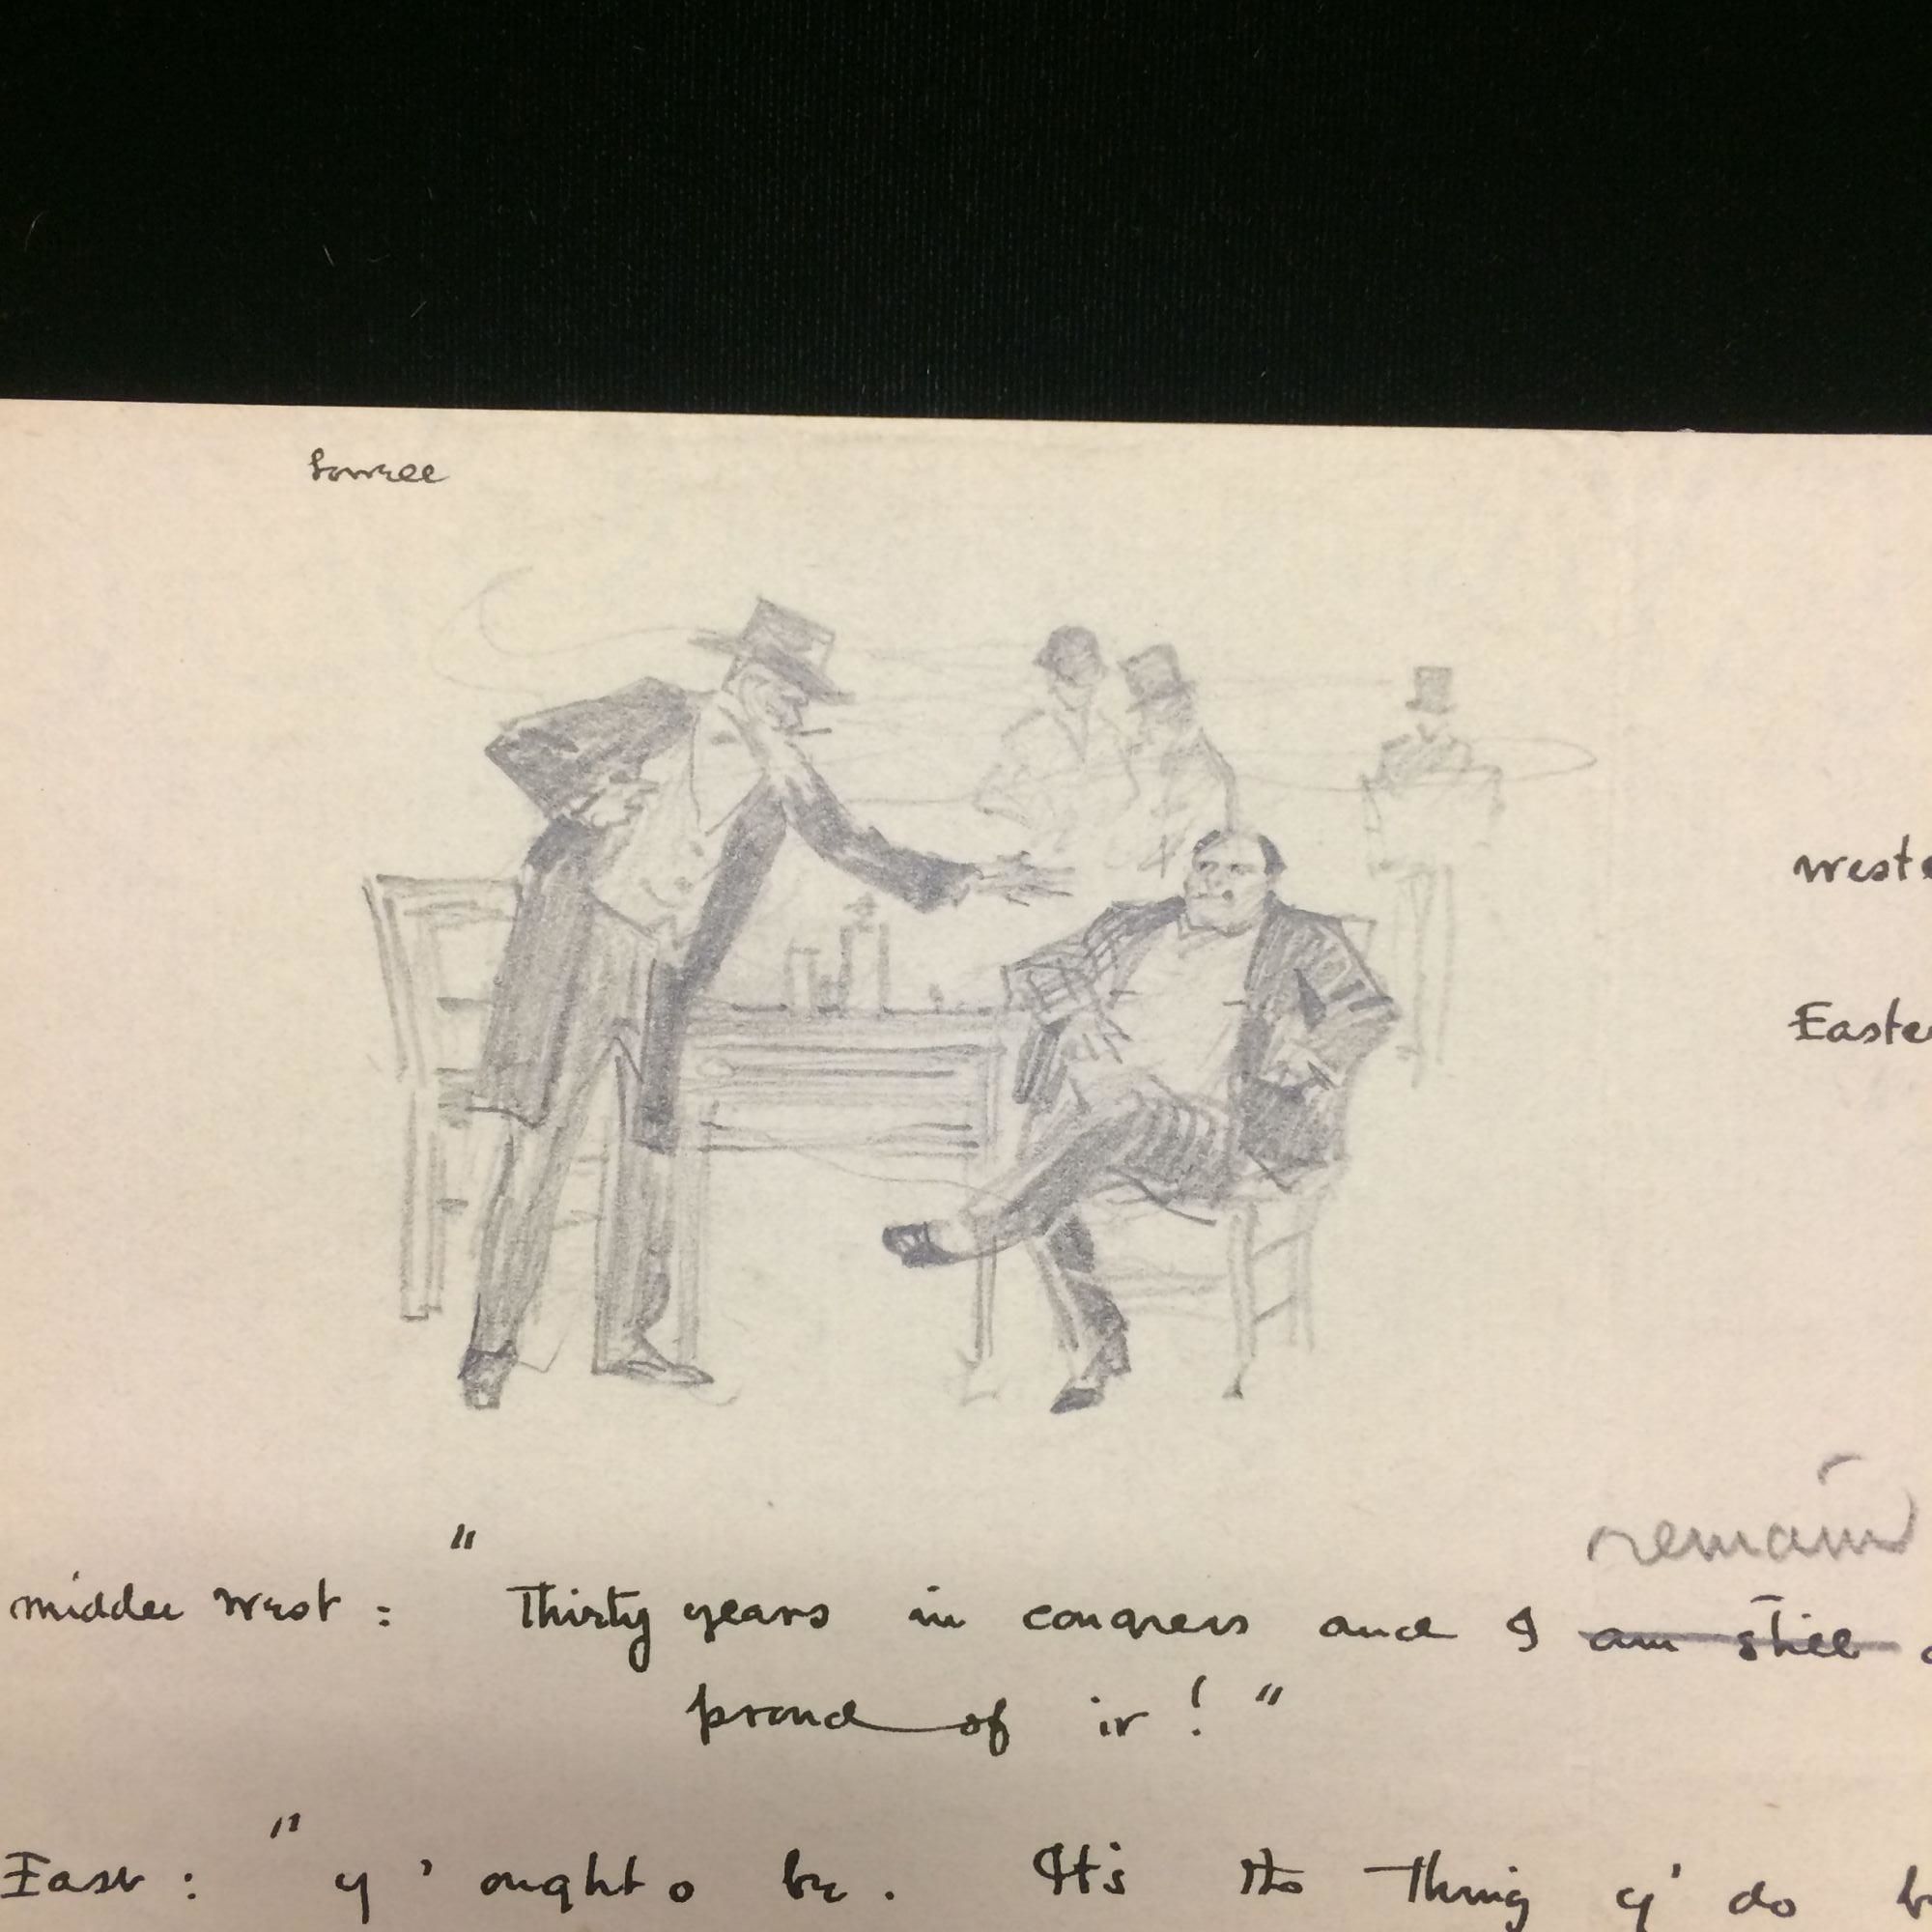 weste
Easte
remain
middle west : " Thirty years in congress and I am still
proud of it ! "
East : " y' ought o be . It's the Thing y' do b